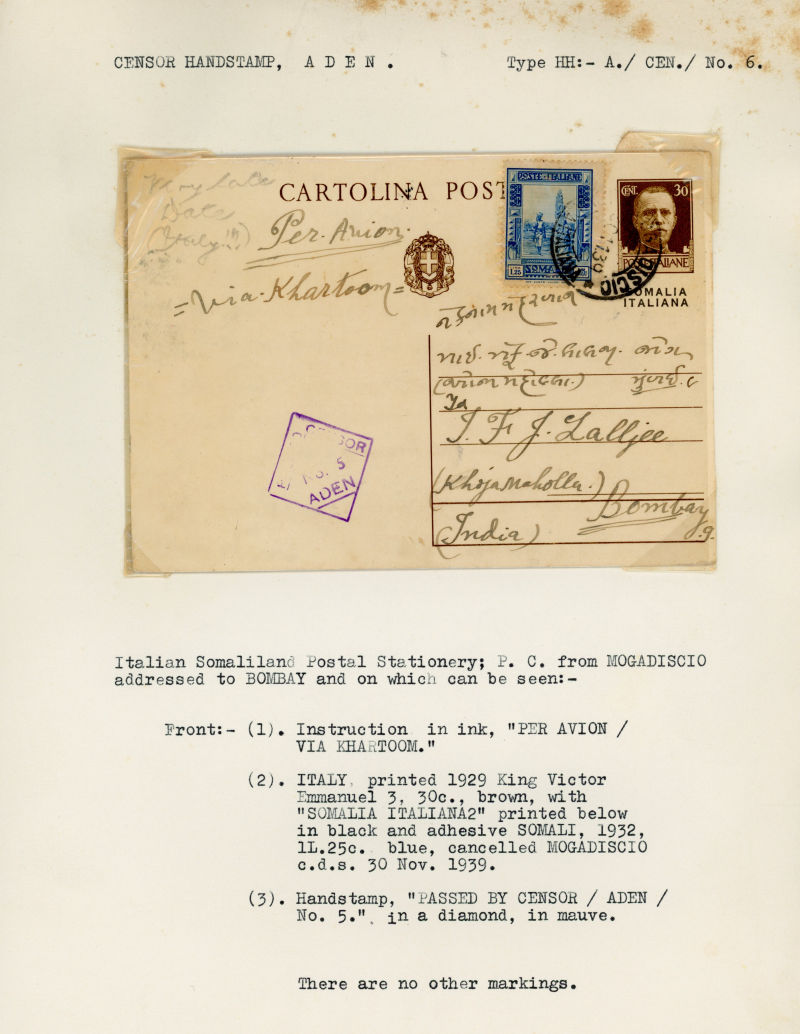 CENSOR HANDSTAMP, A D E N .
Type HH:- A./ CEN./ No. 6.
Very late
Date
(Italy
CARTOLINA POST
Per. Avion.
=Via Khartoom=
POSTE ITALIANE
1.25
SOMALIA
CENT. 30
POSTE ITALIANE
SOMALIA
ITALIANA
To
T. F J. Lalljee
(Khoja Maholla.)
Bombay
9.
(India)
CENSOR
No. 5
ADEN
Italian Somaliland Postal Stationery; P. C. from MOGADISCIO
addressed to BOMBAY and on which can be seen:-
Front:- (1). Instruction in ink, "PER AVION /
VIA KHARTOOM."
(2). ITALY, printed 1929 King Victor
Emmanuel 3, 30c., brown, with
"SOMALIA ITALIANA2" printed below
in black and adhesive SOMALI, 1932,
1L.25c. blue, cancelled MOGADISCIO
c.d.s. 30 Nov. 1939.
(3). Handstamp, "PASSED BY CENSOR / ADEN /
No. 5.", in a diamond, in mauve.
There are no other markings.